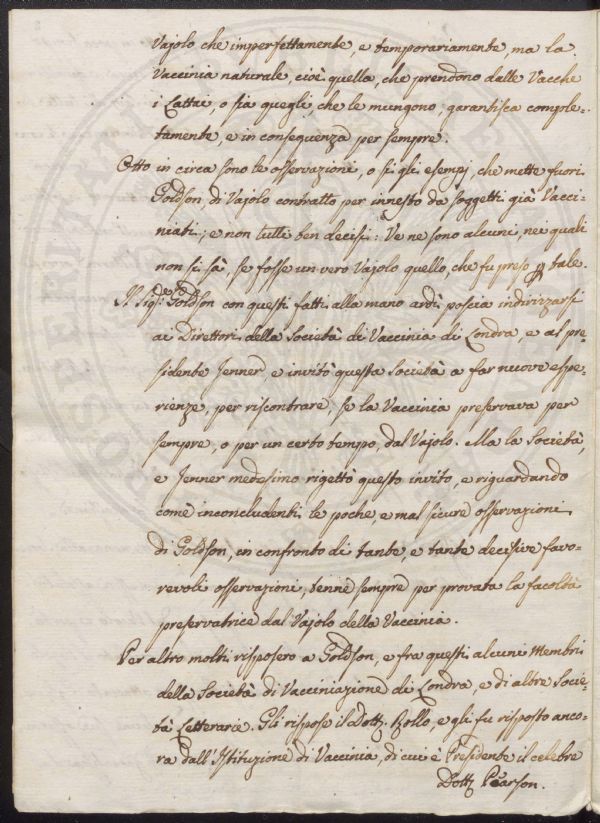 Vajolo che imperfettamente, e temporariamente, ma la
Vaccinia naturale, cioè quella, che prendono dalle Vacche
i Lattai, o sia quegli, che le mungono, garantisca comple=
tamente, e in conseguenza per sempre.
Otto in circa sono le osservazioni, o si gli esempj, che mette fuori
Goldson, di Vajolo contratto per innesto da soggetti già Vacci=
niati; e non tutti ben decisi: Ve ne sono alcuni, nei quali
non si sà, se fosse un vero Vajolo quello, che fu preso p tale.
Il Sig.r Goldson con questi fatti alla mano ardì poscia indirizzarsi
ai Direttori della Società di Vaccinia di Londra, e al pre=
sidente Jenner, e invitò questa Società a far nuove espe=
rienze, per riscontrare, se la Vaccinia preservava per
sempre, o per un certo tempo, dal Vajolo. Ma la Società,
e Jenner medesimo rigettò questo invito, e riguardando
come inconcludenti le poche, e mal sicure osservazioni
di Goldson, in confronto di tante, e tante decisive favo=
revoli osservazioni, tenne sempre per provata la facoltà
preservatrice dal Vajolo della Vaccinia.
Per altro molti risposero a Goldson, e fra questi alcuni Membri
della Società di Vacciniazione di Londra, e di altre Socie=
tà Letterarie. Gli rispose il Dott. Rollo, e gli fu risposto anco=
ra dall'Istituzione di Vaccinia, di cui è Presidente il celebre
Dott. Pearson.